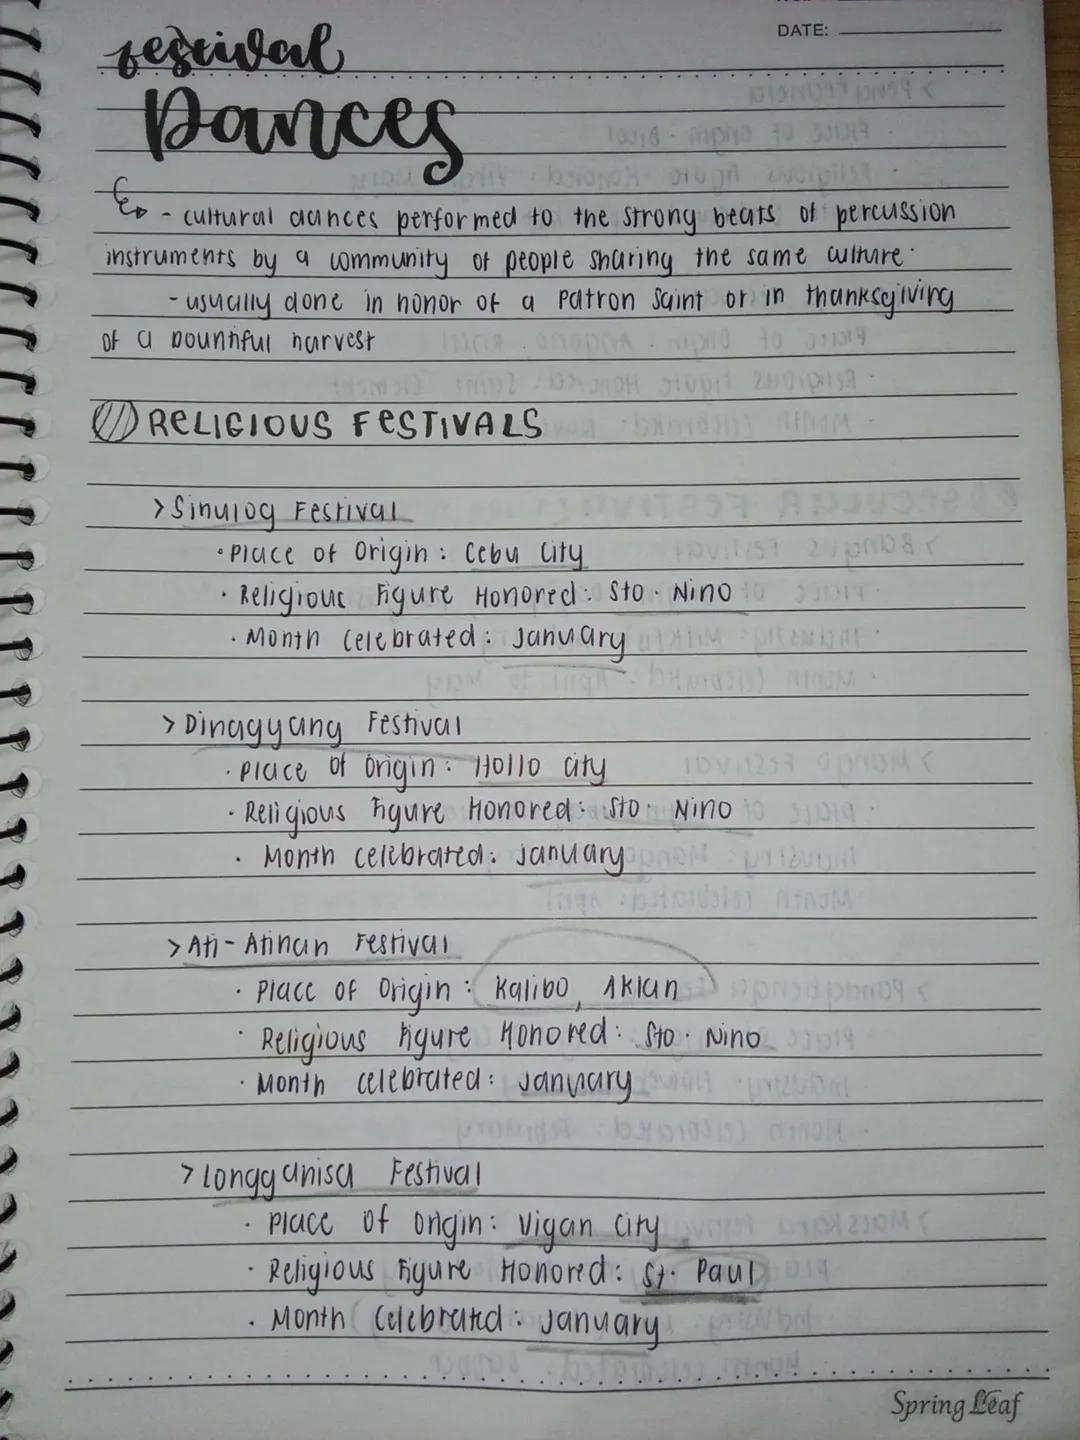 DATE:
Festival
Dances
- cultural dances performed to the strong beats of percussion
instruments by a community of people sharing the same culture.
- usually done in honor of a Patron Saint or in thanksgiving
of a bountiful harvest
RELIGIOUS FESTIVALS
> Sinulog Festival
• Place of Origin : Cebu City
• Religious Figure Honored : Sto. Nino
• Month Celebrated : January
> Dinagyang Festival
• Place of Origin : Iloilo City
• Religious Figure Honored : Sto. Nino
• Month celebrated : January
> Ati-Atihan Festival
• Place of Origin : Kalibo, Aklan
• Religious Figure Honored : Sto. Nino
• Month celebrated : January
> Longganisa Festival
• Place of Origin : Vigan City
• Religious Figure Honored : St. Paul
• Month Celebrated : January
Spring Leaf